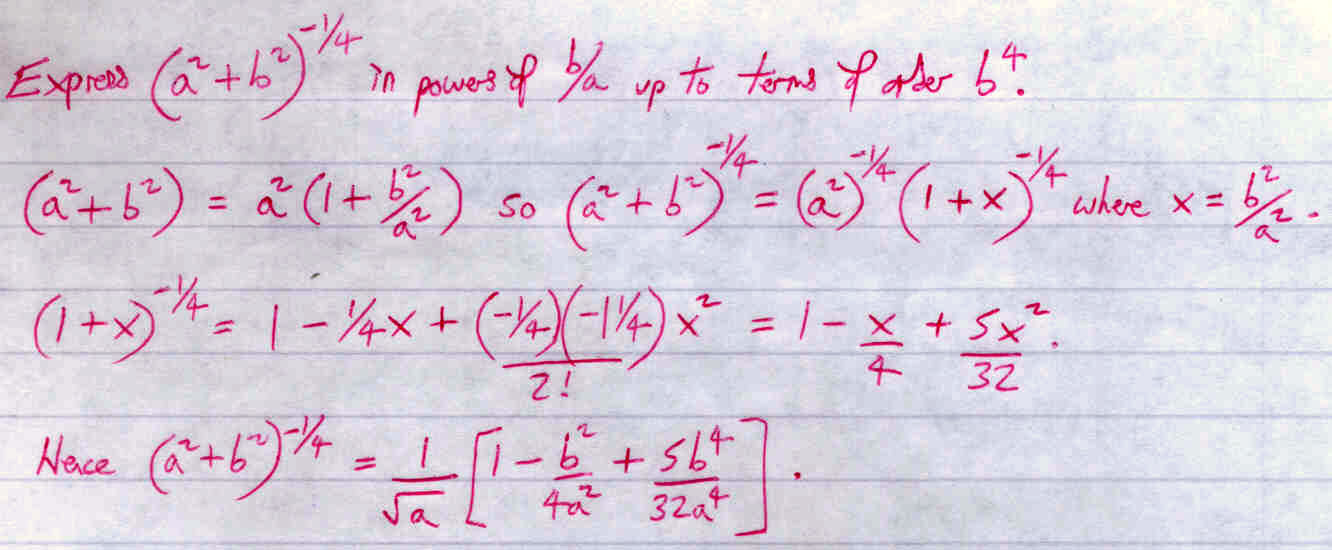 Express (a²+b²)^-1/4 in powers of b/a up to terms of order b⁴.
(a²+b²) = a²(1+b²/a²) so (a²+b²)^-1/4 = (a²)^-1/4 (1+x)^-1/4 where x = b²/a².
(1+x)^-1/4 = 1 - 1/4x + (-1/4)(-1 1/4)/2! x² = 1 - x/4 + 5x²/32.
Hence (a²+b²)^-1/4 = 1/√a [1 - b²/4a² + 5b⁴/32a⁴].